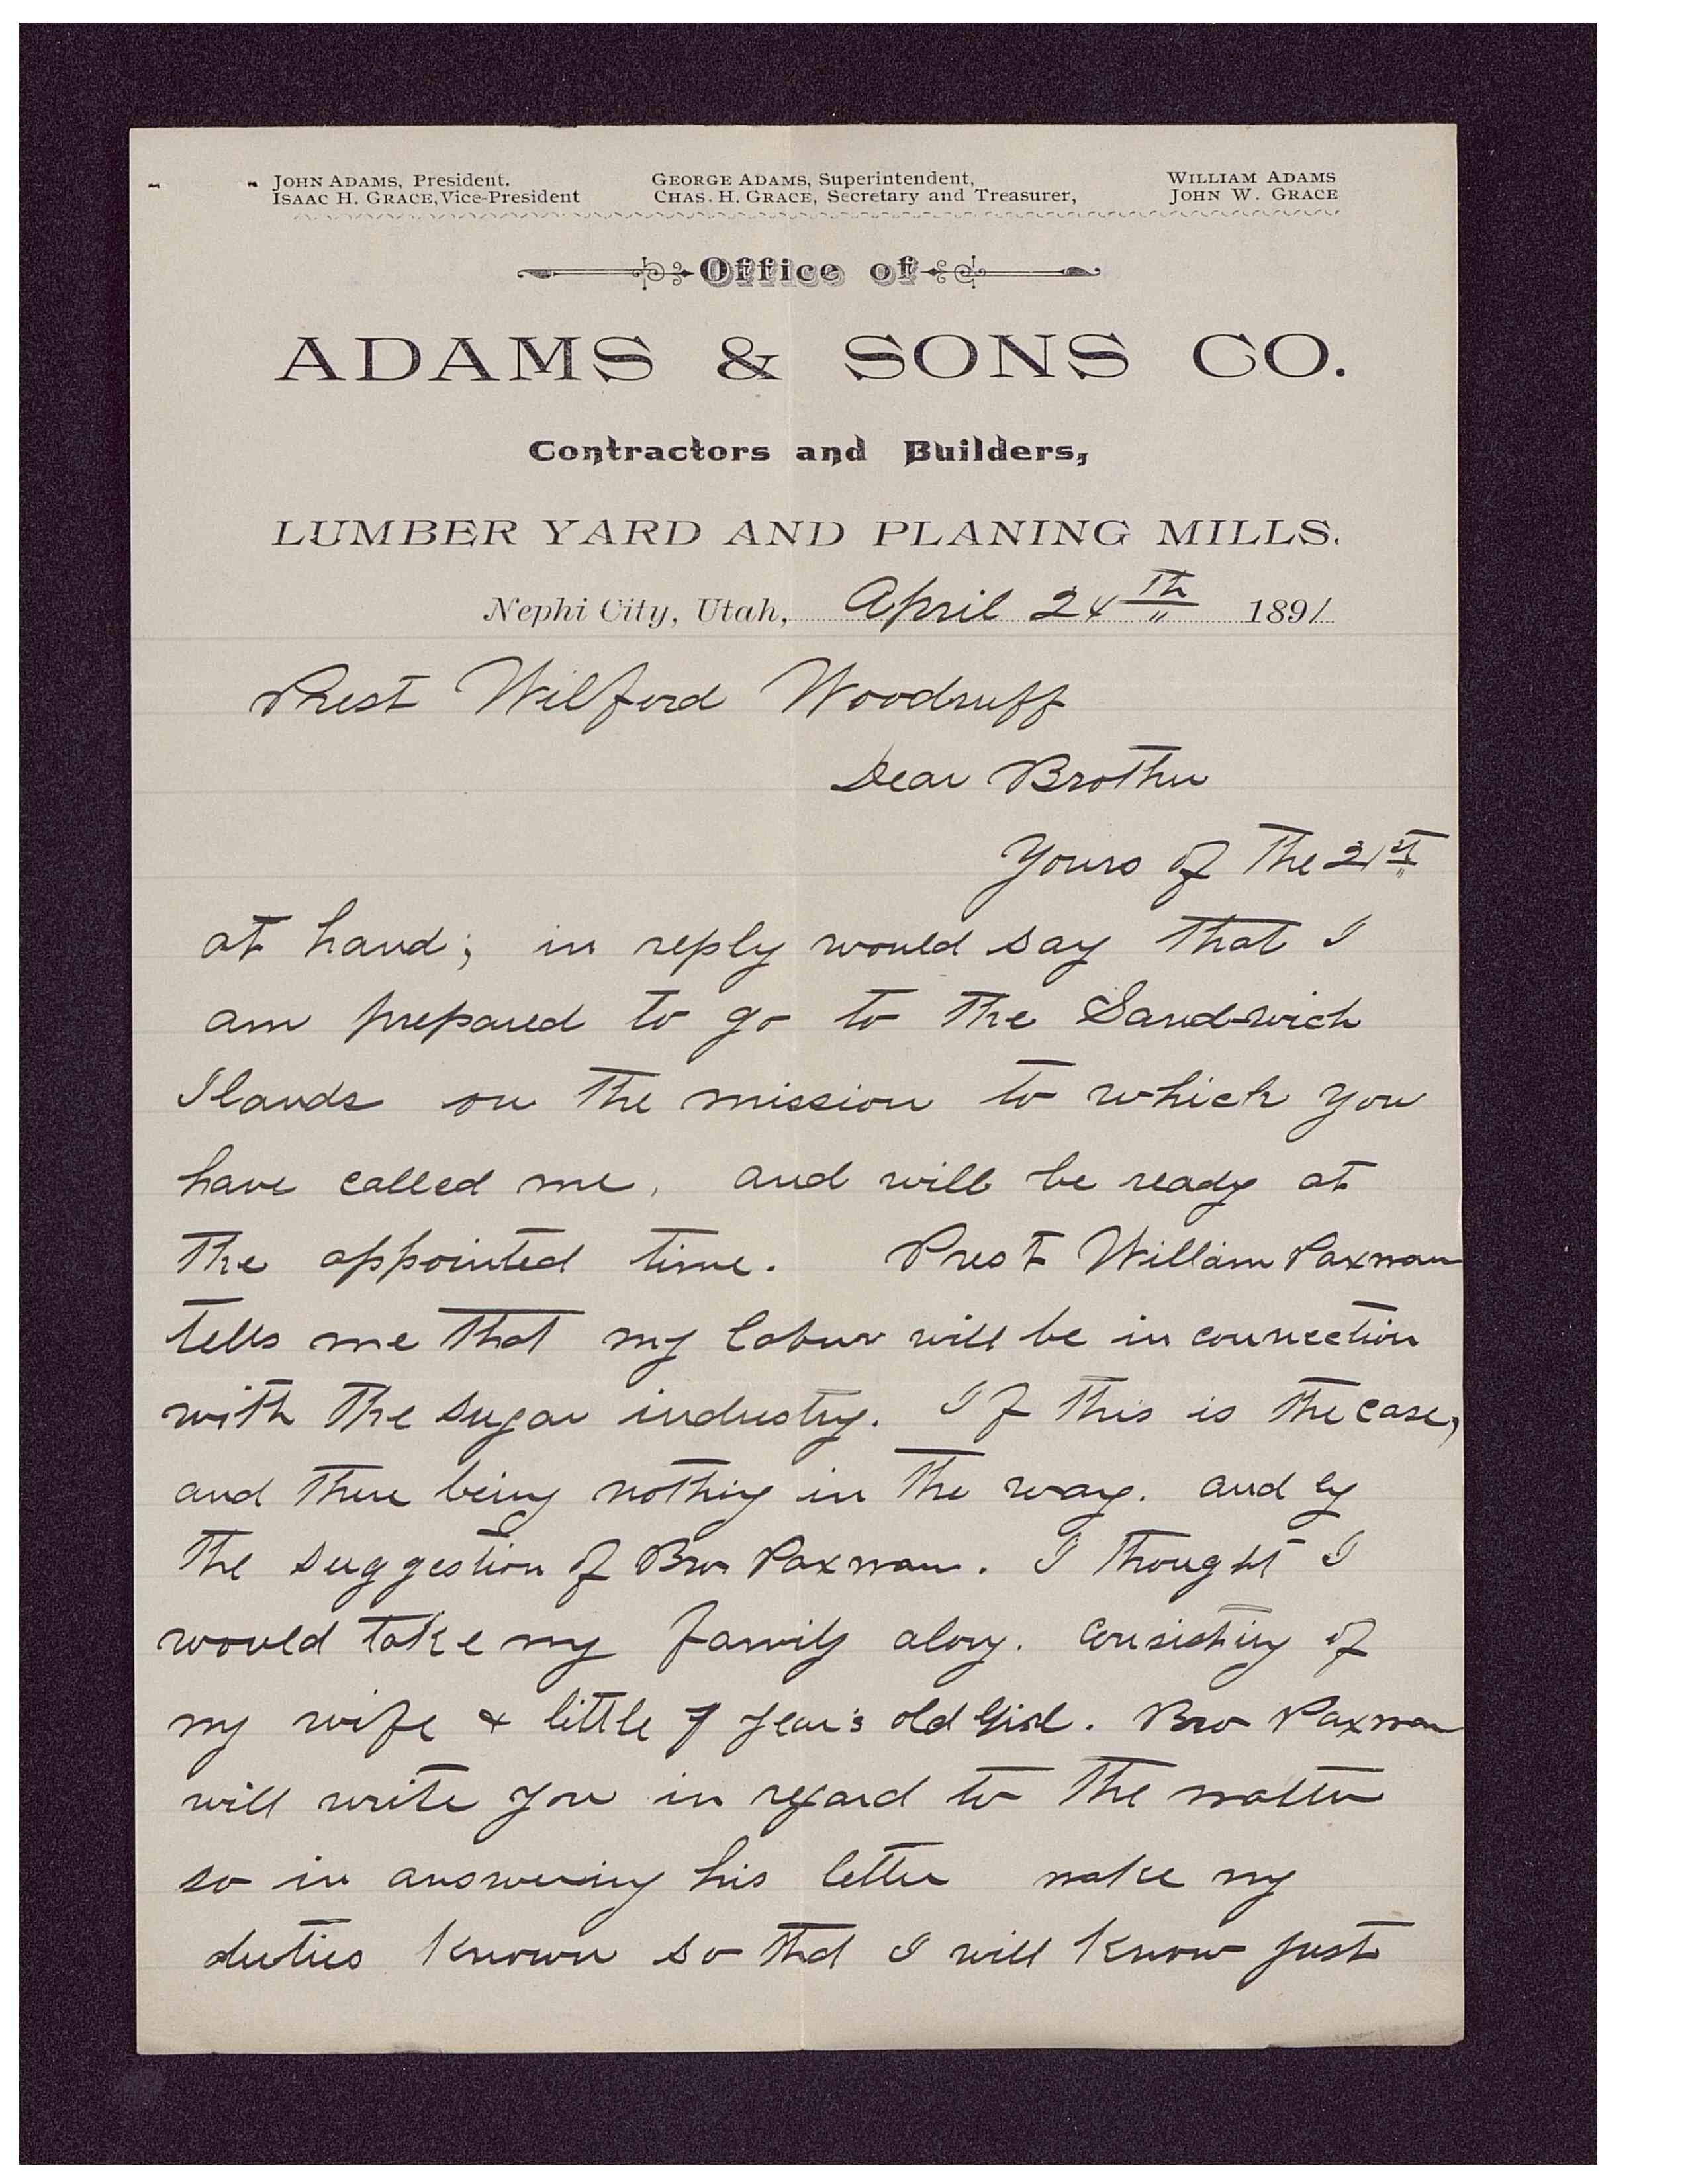 JOHN ADAMS, President. GEORGE ADAMS, Superintendent, WILLIAM ADAMS
ISAAC H. GRACE, Vice-President CHAS. H. GRACE, Secretary and Treasurer, JOHN W. GRACE
Office of
ADAMS & SONS CO.
Contractors and Builders,
LUMBER YARD AND PLANING MILLS.
Nephi City, Utah, April 24th 1891
Prest Wilford Woodruff
Dear Brother
Yours of the 21st
at hand; in reply would say that I
am prepared to go to the Sandwich
Ilands on the mission to which you
have called me, and will be ready at
the appointed time. Prest William Paxman
tells me that my labour will be in connection
with the sugar industry. If this is the case,
and there being nothing in the way. and by
the suggestion of Bro Paxman. I thought I
would take my family along. consisting of
my wife & little 7 year's old Girl. Bro Paxman
will write you in regard to the matter
so in answering his letter make my
duties known so that I will know just